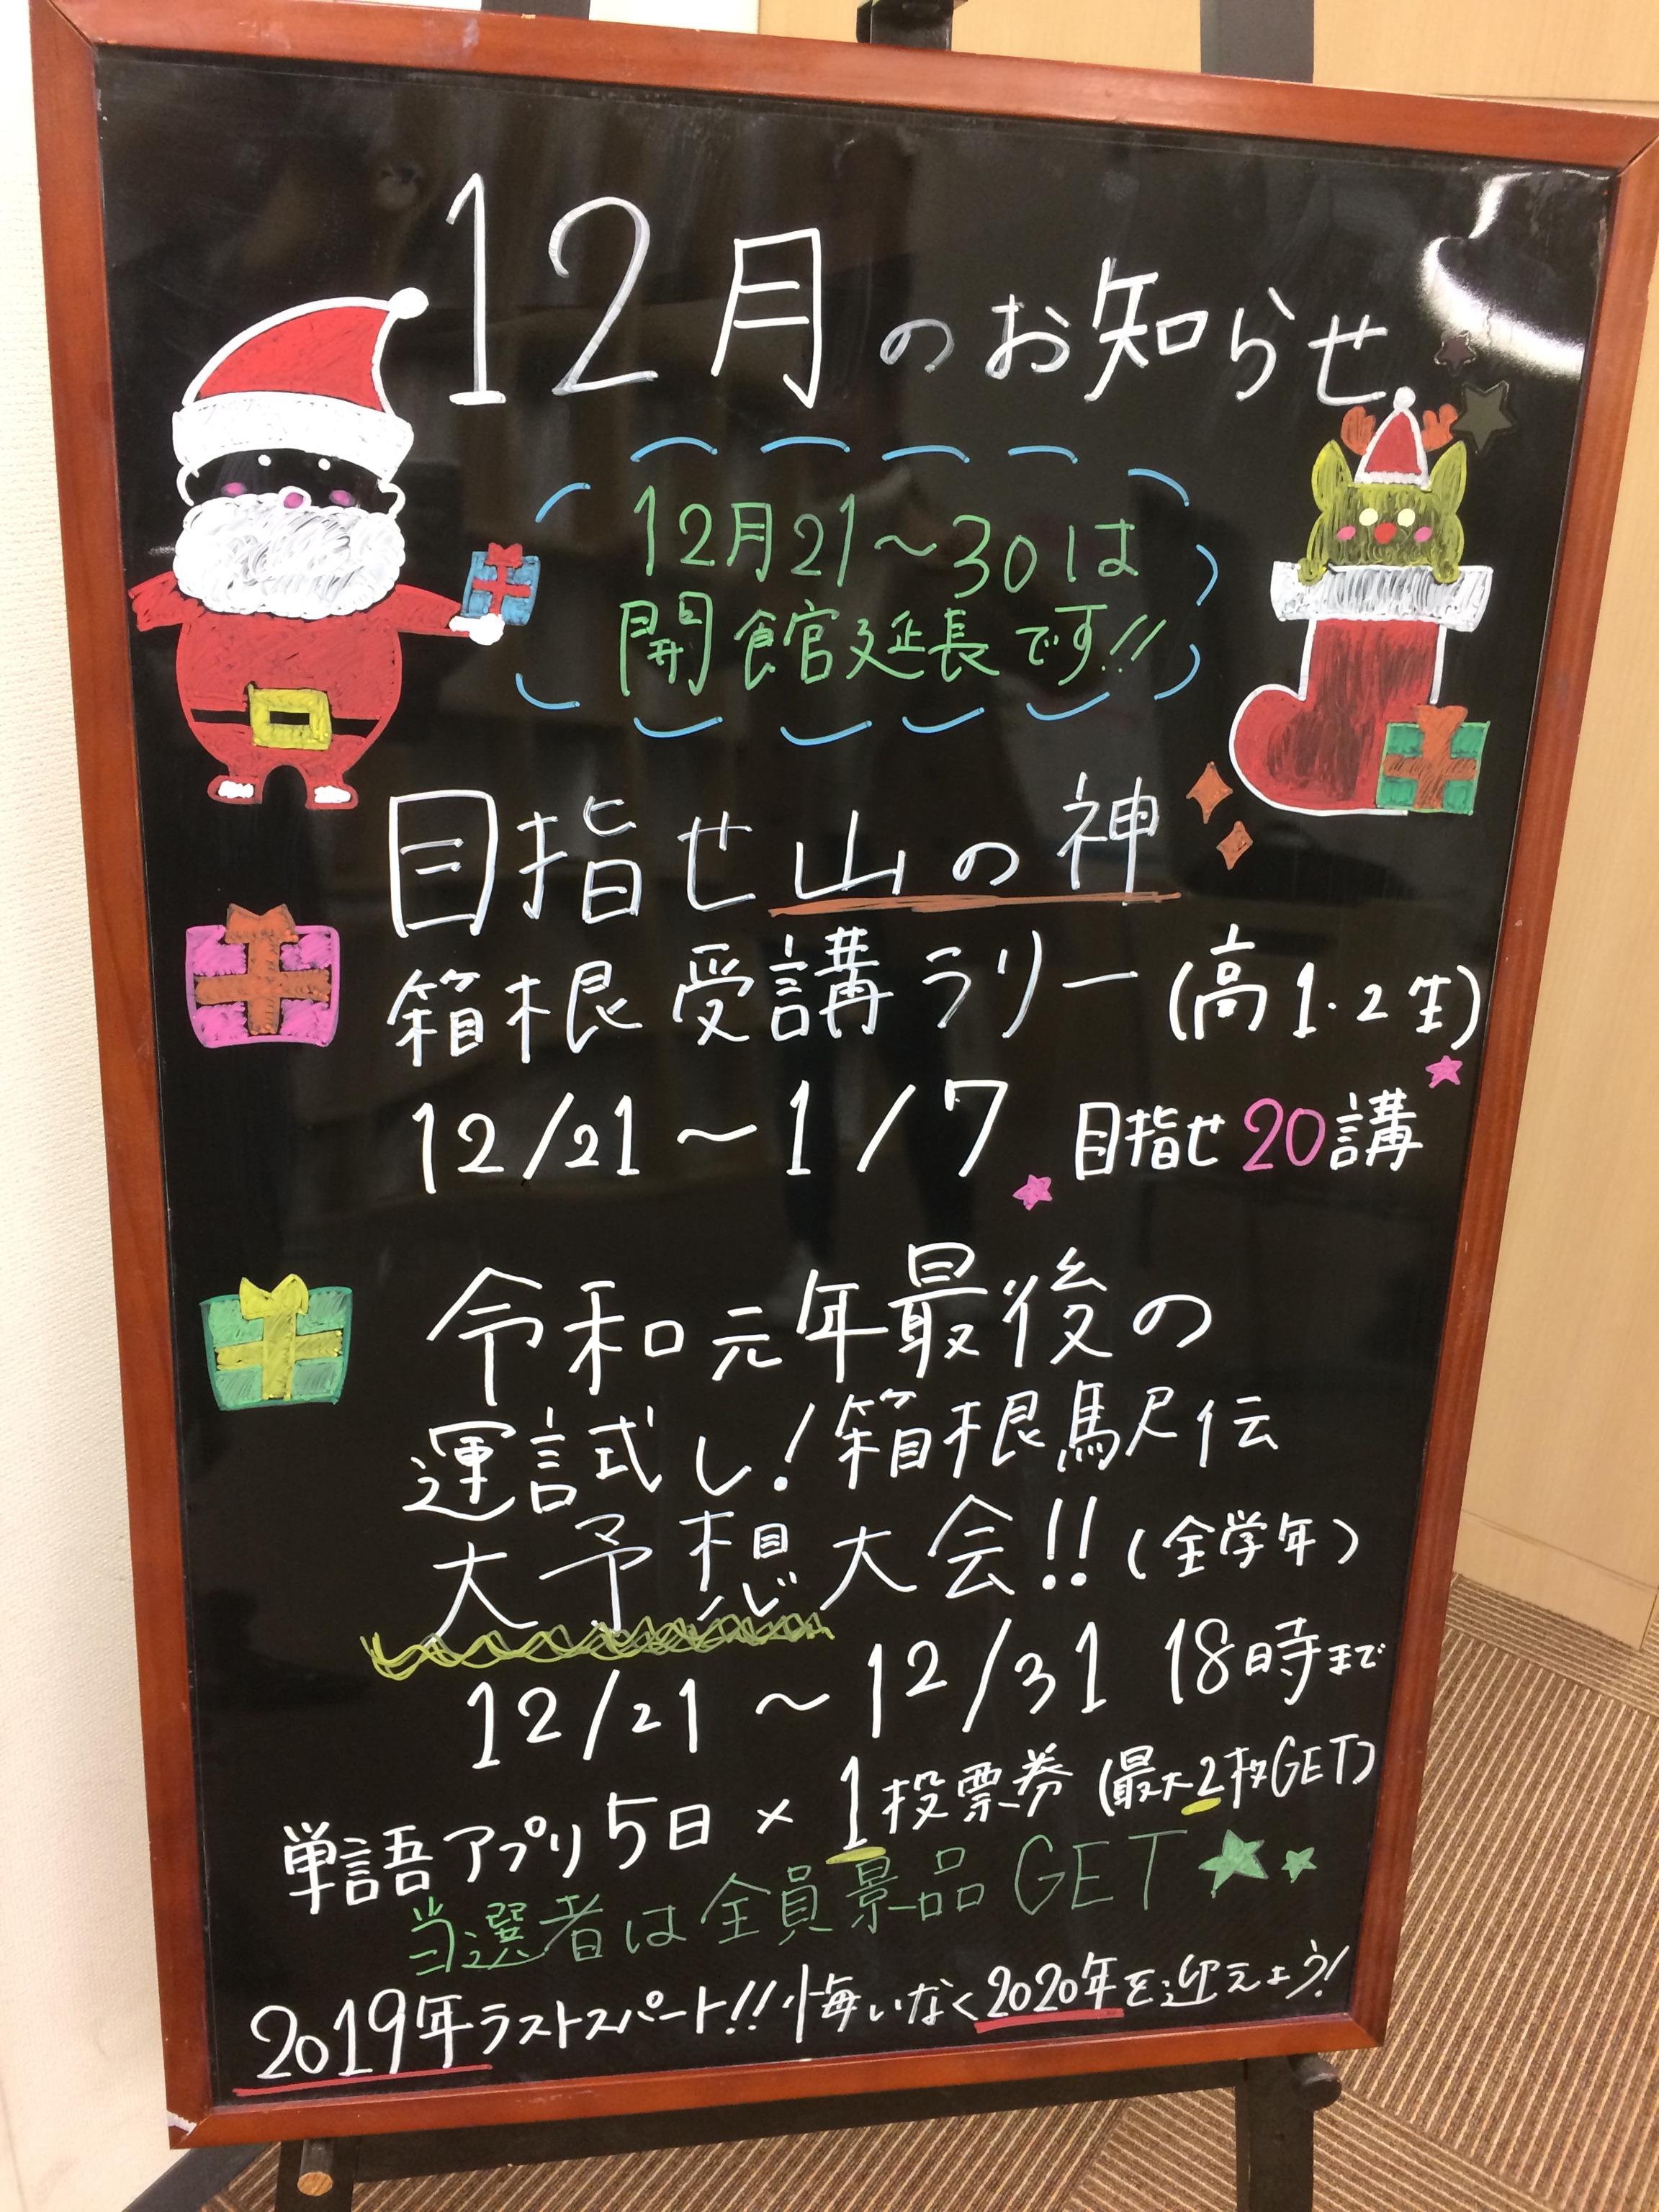 12月のお知らせ
12月21〜30は
開館延長です!!
目指せ山の神
箱根受講ラリー(高1・2生)
12/21〜1/7 目指せ20講
令和元年最後の
運試し!箱根駅伝
大予想大会!!(全学年)
12/21〜12/31 18時まで
単語アプリ5日×1投票券(最大2枚GET)
当選者は全員景品GET
2019年ラストスパート!!悔いなく2020年を迎えよう!